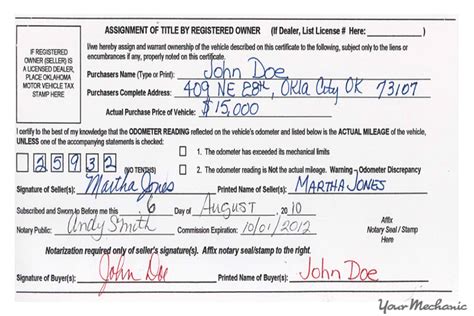 ASSIGNMENT OF TITLE BY REGISTERED OWNER (If Dealer, List License # Here: )
IF REGISTERED OWNER (SELLER) IS A LICENSED DEALER, PLACE OKLAHOMA MOTOR VEHICLE TAX STAMP HERE
I/we hereby assign and warrant ownership of the vehicle described on this certificate to the following, subject only to the liens or
encumbrances if any, properly noted on this certificate.
Purchasers Name (Type or Print): John Doe
Purchasers Complete Address: 409 NE 28th, Okla City OK 73107
Actual Purchase Price of Vehicle: $15,000
I certify to the best of my knowledge that the ODOMETER READING reflected on the vehicle's odometer and listed below is the ACTUAL MILEAGE of the vehicle,
UNLESS one of the accompanying statements is checked:
25932 (NO TENTHS)
1. The odometer has exceeded its mechanical limits
2. The odometer reading is Not the actual mileage. Warning - Odometer Discrepancy
Signature of Seller(s): Martha Jones Printed Name of Seller(s): MARTHA JONES
Subscribed and Sworn to Before me this 6 Day of AUGUST, 2010
Notary Public: Andy Smith Commission Expiration: 10/01/2012
Affix
Notary Seal / Stamp
Here
Notarization required only of seller's signature(s). Affix notary seal/stamp to the right.
Signature of Buyer(s): John Doe Printed Name of Buyer(s): John Doe
YourMechanic